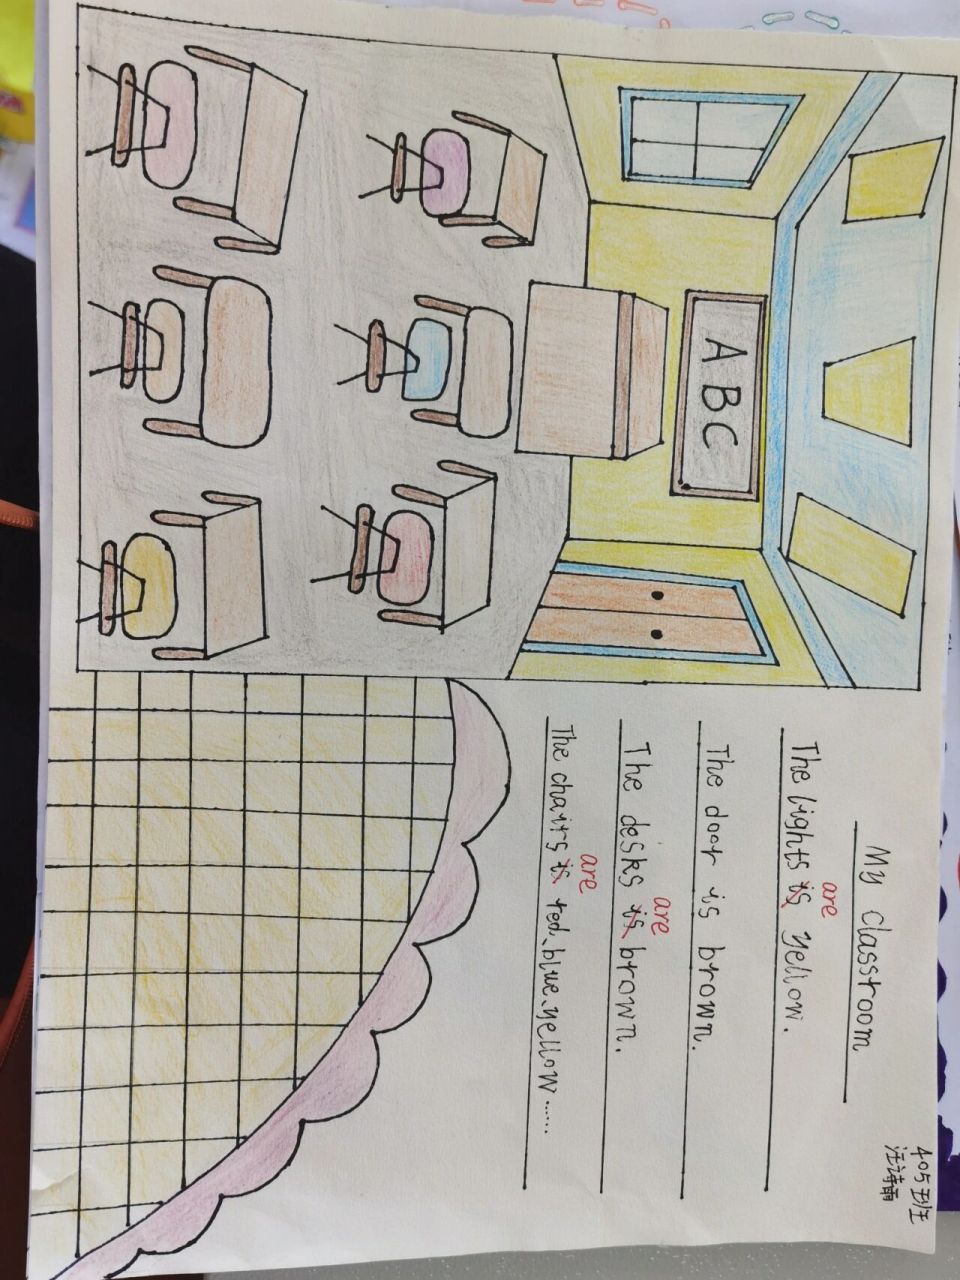 ABC
405班
汪诗雨
My classroom
are
The lights is yellow.
The door is brown.
are
The desks is brown.
are
The chairs is red、blue、yellow……